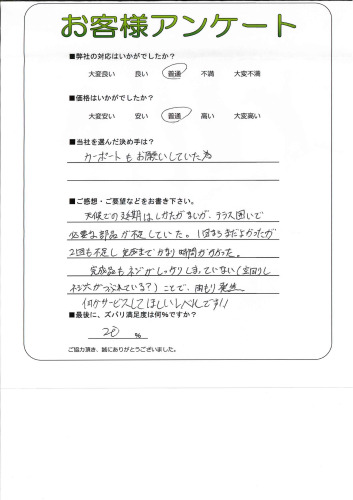 お客様アンケート
■弊社の対応はいかがでしたか?
大変良い 良い 普通 不満 大変不満
■価格はいかがでしたか?
大変安い 安い 普通 高い 大変高い
■当社を選んだ決め手は?
カーポートもお願いしていた為
■ご感想・ご要望などをお書き下さい。
天候での延期はしかたがないが、テラス囲いで
必要な部品が不足していた。1回ならまだよかったが
2回も不足し完成までかなり時間がかかった。
完成品もネジがしっかりしまっていない(空回りし
ネジ穴がつぶれている?)ことで、雨もり発生
何かサービスしてほしいレベルです!!
■最後に、ズバリ満足度は何%ですか?
20 %
ご協力頂き、誠にありがとうございました。